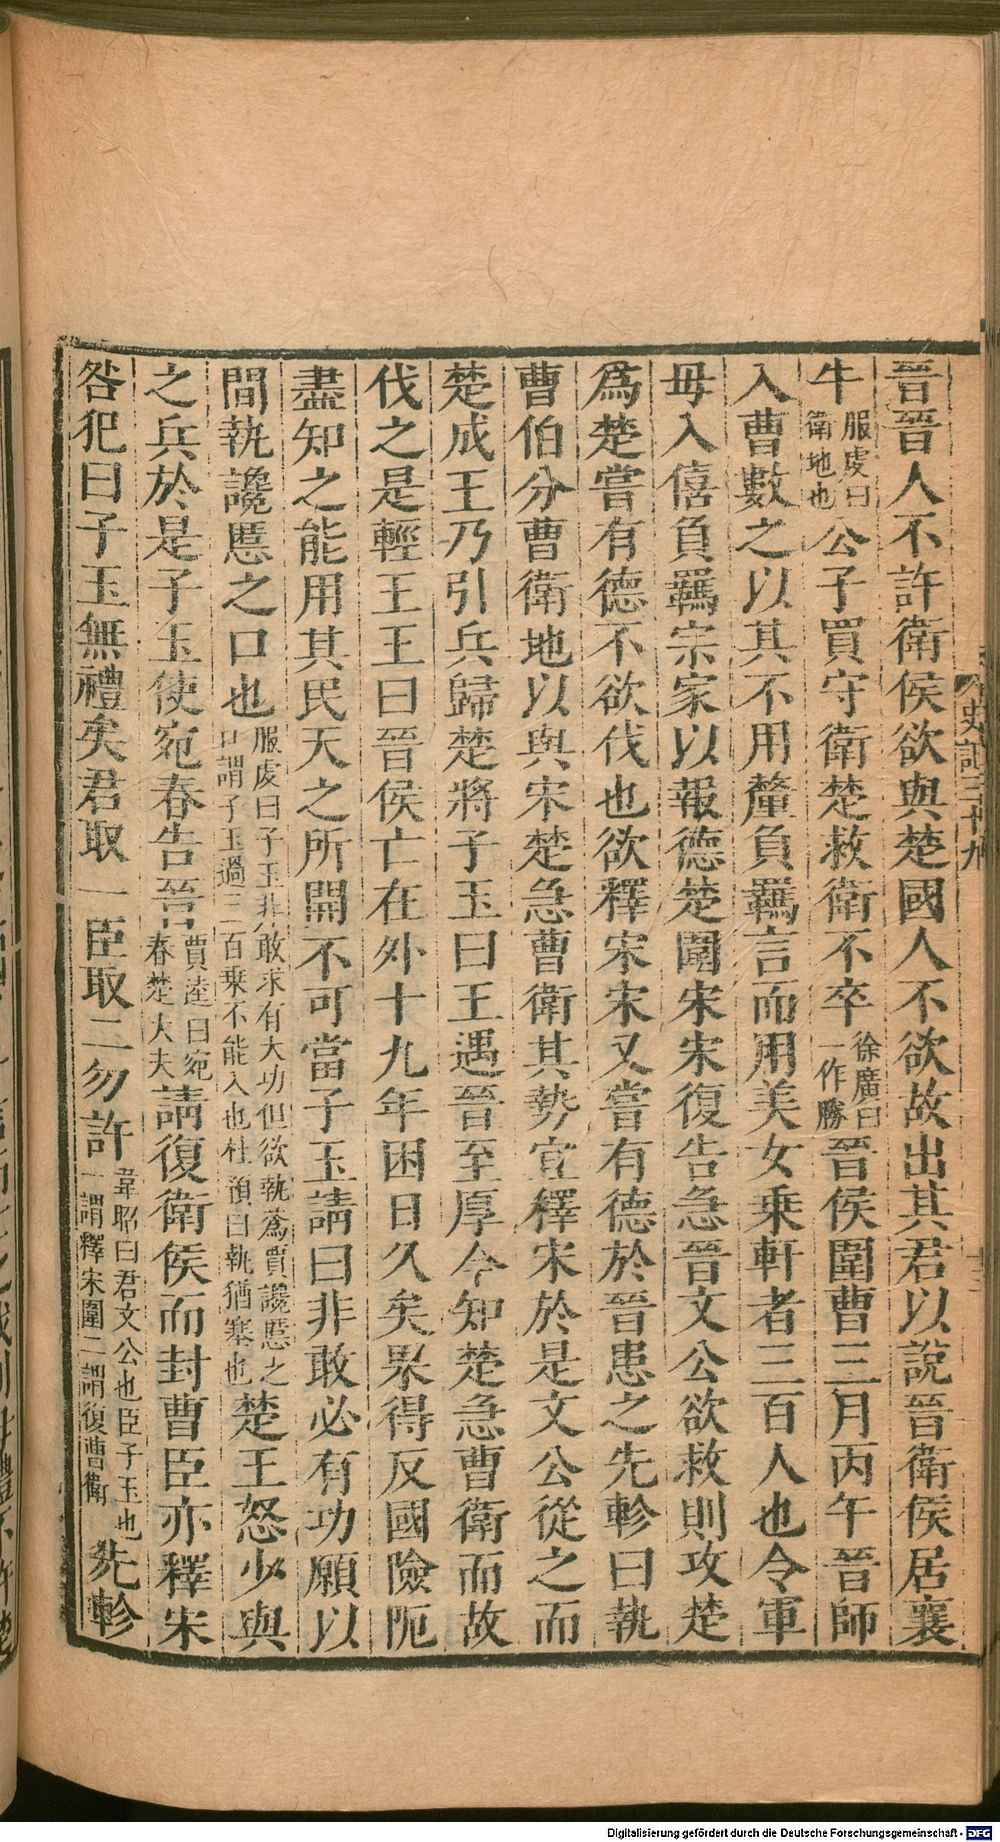 晉晉人不許衛侯欲與楚國人不欲故出其君以說晉衛侯居襄
牛服虔曰衛地也公子買守衛楚救衛不卒徐廣曰一作勝晉侯圍曹三月丙午晉師
入曹數之以其不用釐負羈言而用美女乗軒者三百人也令軍
毋入僖負羈宗家以報德楚圍宋宋復告急晉文公欲救則攻楚
爲楚嘗有德不欲伐也欲釋宋宋又嘗有德於晉患之先軫曰執
曹伯分曹衛地以與宋楚急曹衛其勢宜釋宋於是文公從之而
楚成王乃引兵歸楚將子玉曰王遇晉至厚今知楚急曹衛而故
伐之是輕王王曰晉侯亡在外十九年困日久矣果得反國險阨
盡知之能用其民天之所開不可當子玉請曰非敢必有功願以
間執讒慝之口也服虔曰子玉非敢求有大功但欲執蒍賈讒慝之口謂子玉過三百乗不能入也杜預曰執猶塞也楚王怒少與
之兵於是子玉使宛春告晉賈逵曰宛春楚大夫請復衛侯而封曹臣亦釋宋
咎犯曰子玉無禮矣君取一臣取二勿許韋昭曰君文公也臣子玉也一謂釋宋圍二謂復曹衛先軫
史記三十九
Digitalisierung gefördert durch die Deutsche Forschungsgemeinschaft - DFG